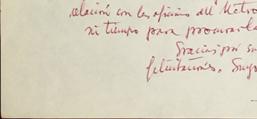 relación con las oficinas del Metro
ni tiempo para procurarla
Gracias por su
felicitaciones. Suyo